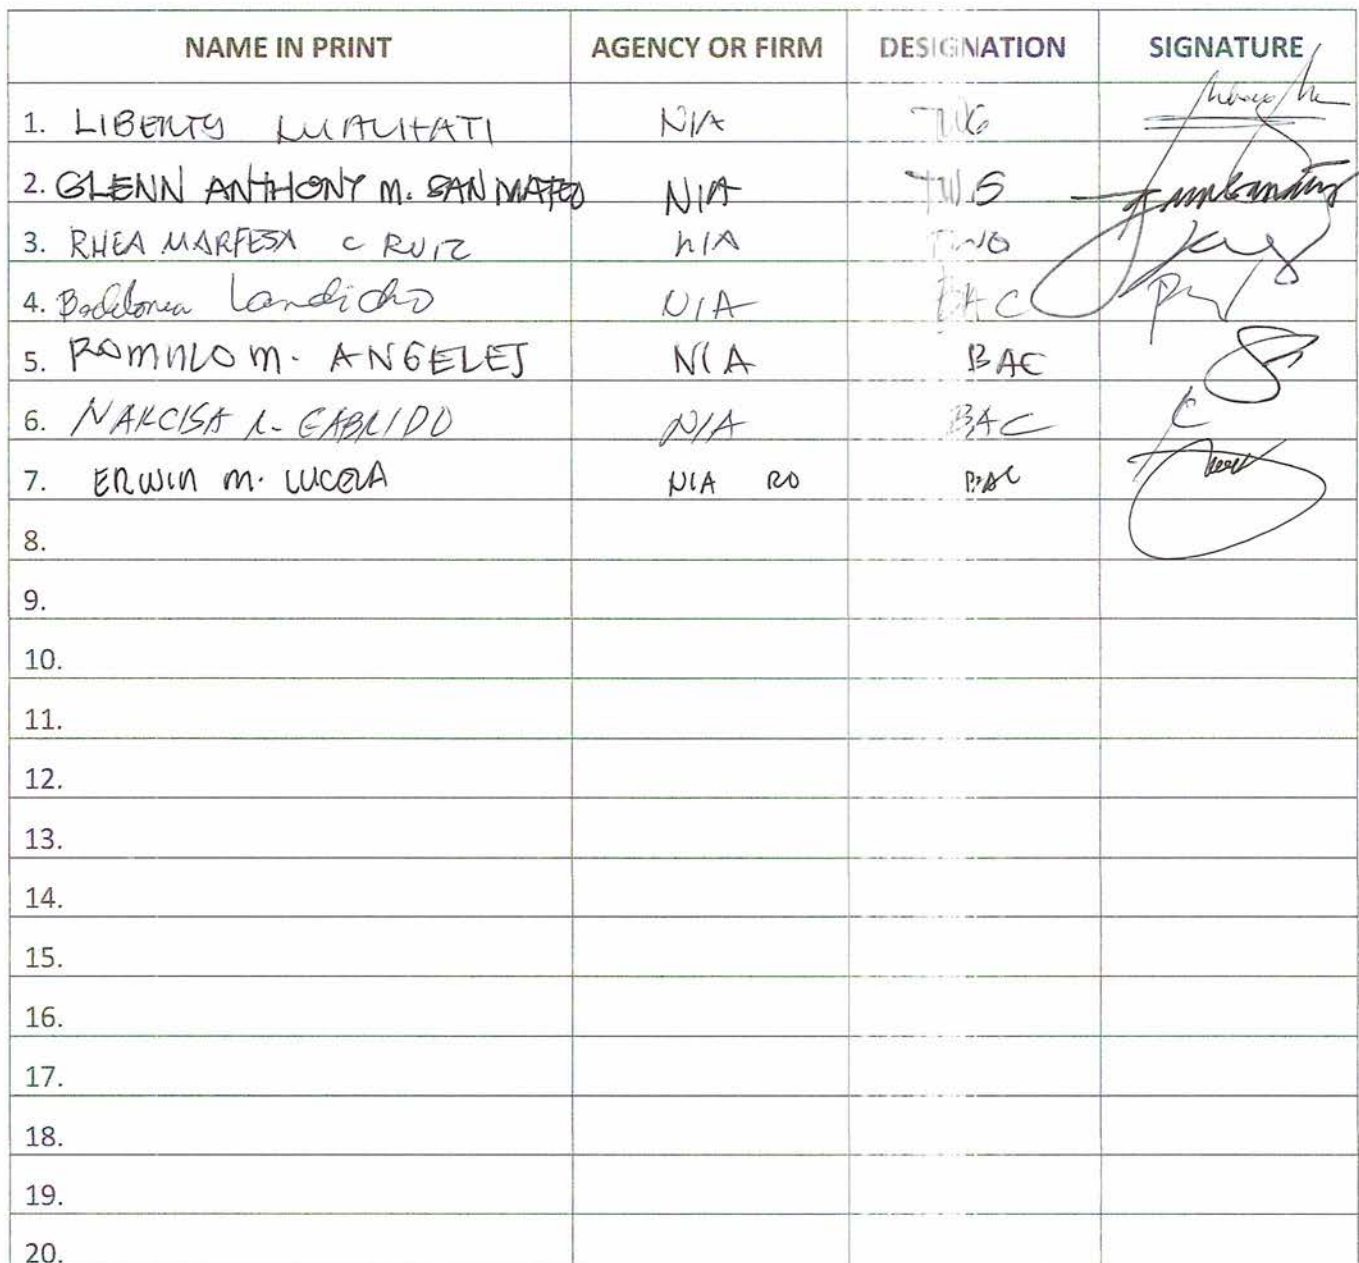 NAME IN PRINT AGENCY OR FIRM DESIGNATION SIGNATURE
1. LIBERTY NIA TWG
2. GLENN ANTHONY M. SAN MATEO NIA TWG
3. RHEA MARFESA C RUIZ NIA TWG
4. Landicho NIA BAC
5. ROMULO M. ANGELES NIA BAC
6. NARCISA R. GABRIDO NIA BAC
7. ERWIN M. LUCERA NIA RO BAC
8.
9.
10.
11.
12.
13.
14.
15.
16.
17.
18.
19.
20.